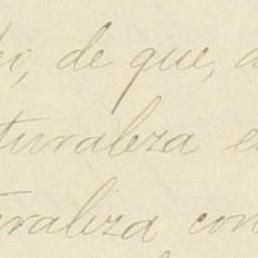 de que,
turaleza
raleza con